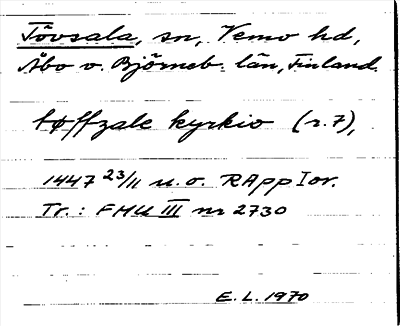 Tövsala, sn, Vemo hd,
Åbo o. Björneb. län, Finland.
tøffzale kyrkio (r. 7),
1447 23/11 u.o. RAppIor.
Tr.: FMU III nr 2730
E.L. 1970